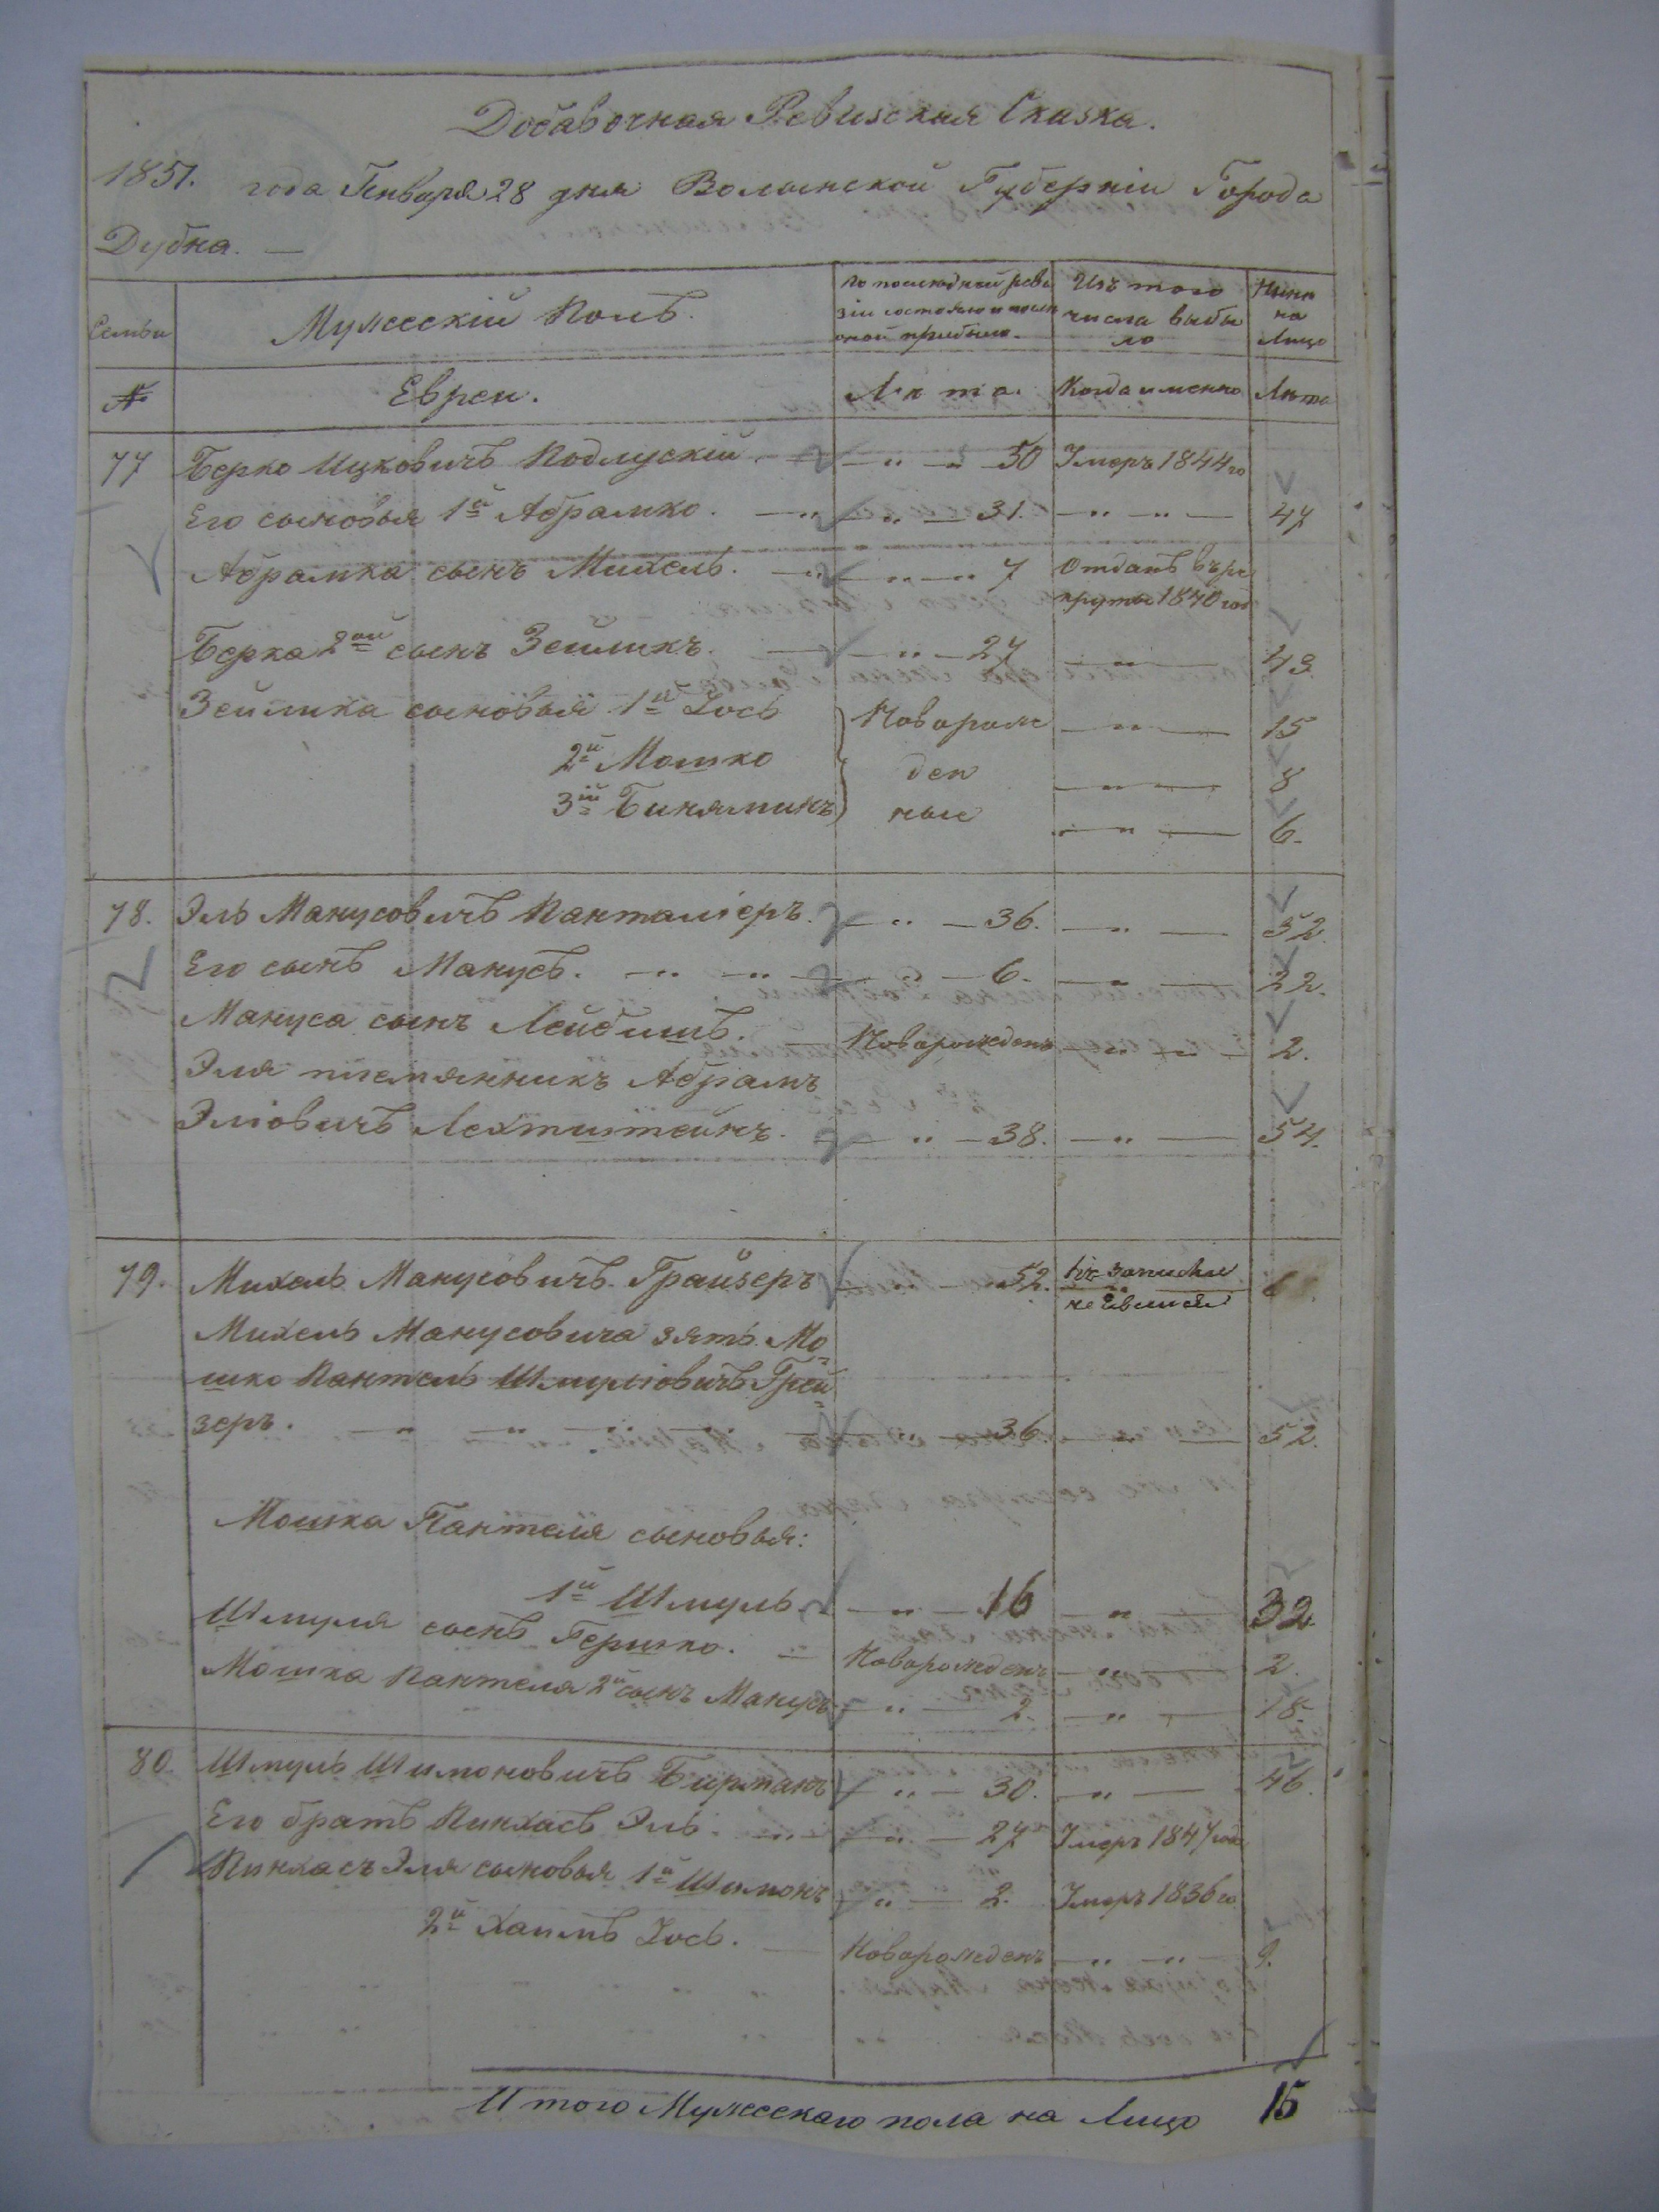 Добавочная Ревизская Сказка.
1851. года Генваря 28 дня Волынской Губерніи Города
Дубна. —
Семьи
Мужескій Полъ.
По последней реви
зіи состояло и после
оной прибыло.
Изъ того
числа выбы
ло
Ныне
на
Лицо
№
Евреи.
Лѣта.
Когда именно
Лѣта
77 Берко Ицковичъ Подлускій — " — " 50 Умеръ 1844 го
Его сыновья 1й Абрамко. — " — " — 31. — " — " — 47
Абрамка сынъ Михель. — " — " — " 7 Отданъ въ ре
круты 1840 год
Берка 2ой сынъ Зейликъ. — " — 27 — " — 43
Зейлика сыновья 1й Іось Новорож — " — 15
2й Мошко ден — " — 8
3й Биняминъ ные — " — 6.
78. Эль Манусовичъ Панталіеръ. — " — 36. — " — 52.
Его сынъ Манусъ. — " — " — 6. — " — 22.
Мануса сынъ Лейбишъ. — Новорожденъ — " — " — 2.
Эля племянникъ Абрамъ
Эліовичъ Лехтштейнъ. — " — 38. — " — 54.
79. Михель Манусовичъ Грайзеръ 52. къ записки
не явился 6
Михель Манусовича зять Мо-
шко Пантель Шмуліовичъ Грей-
зеръ. — " — " — " — 36. — " — 52.
Мошка Пантеля сыновья:
1й Шмуль — " — 16 — " — 32
Шмуля сынъ Гершко. — Новорожденъ — " — 2.
Мошка Пантеля 2й сынъ Манусъ — " — 2. — " — 18.
80. Шмуль Шимоновичъ Бирманъ — " — 30. — " — 46.
Его братъ Пинхасъ Эль. — " — " — 27 Умеръ 1847 года
Пинхасъ Эля сыновья 1й Шимонъ " — 2. Умеръ 1836 го
2й Хаимъ Іось. — Новорожденъ — " — " — 9.
Итого Мужескаго пола на Лицо 15